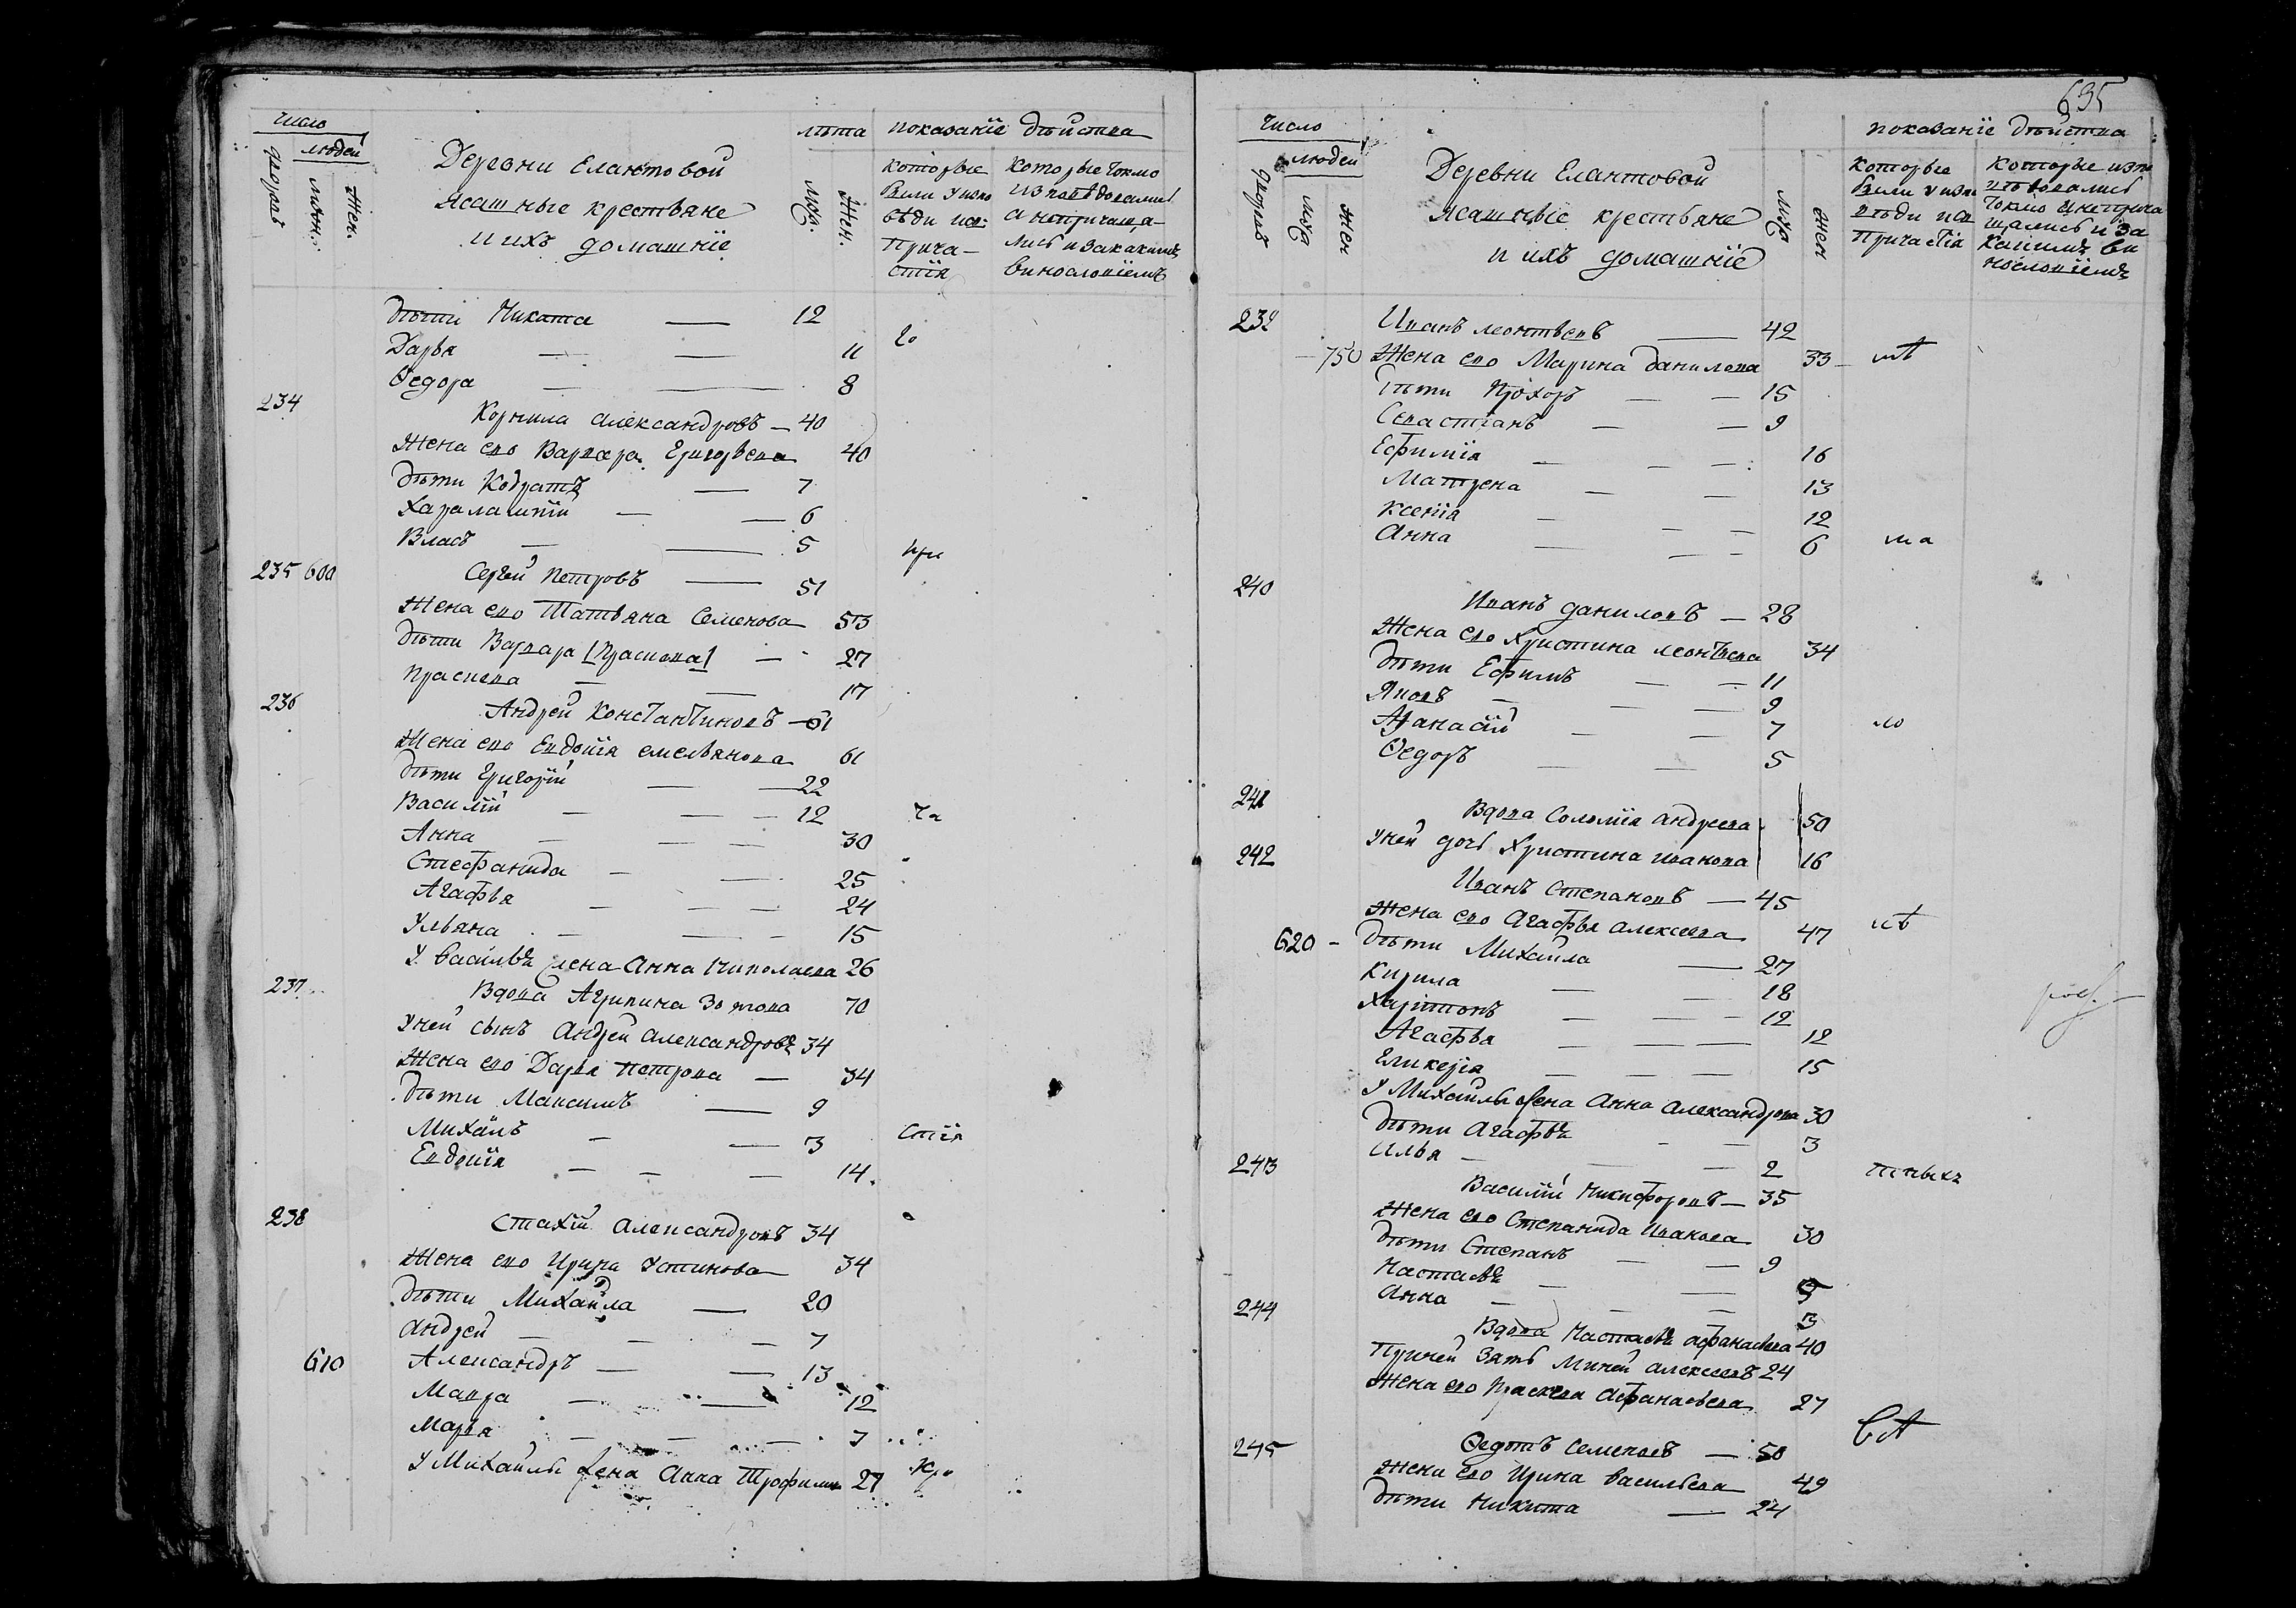 число
людей
дворовъ
мужн.
жен.
Деревни Елантовой
Ясашные крестьяне
и ихъ домашнїе
лѣта
муж.
жен.
показанїе дѣйства
которые
были у испо
вѣди и св:
прича–
стїя
которые токмо
исповѣдовались
а непричаща–
лись и за какимъ
винословїемъ
дѣти Никита — 12
Дарья — — 11
Ѳедора — — 8
234
Корнила Александровъ — 40
Жена его Варвара Григорьева 40
дѣти Кодратъ — 7
Харалампїй — — 6
Власъ — — 5
235 600
Сергей Петровъ — 51
Жена его Татьяна Семенова 53
дѣти Варвара [Прасковa] — 27
Прасковa — — 17
236
Андрей Константиновъ — 61
Жена его Евдокїя Емельянова 61
дѣти Григорїй — — 22
Василїй — — — 12
Анна — — — 30
Стефанида — — 25
Агафья — — — 24
Ульяна — — — 15
У Василья жена Анна Николаева 26
237
Вдова Агрипина Зотова 70
У ней сынъ Андрей Александровъ 34
Жена его Дарья Петрова — 34
дѣти Максимъ — 9
Михаилъ — — 3
Евдокїя — — — 14
238
Стахїй Александровъ 34
Жена его Ирина Устинова 34
дѣти Михайла — 20
Андрей — — — 7
610
Александръ — — 13
Мавра — — 12
Марья — — — 7
У Михайлы жена Анна Трофимова 27
го
при
ча
стїя
635
число
людей
дворовъ
муж
жен
Деревни Елантовой
Ясашные крестьяне
и ихъ домашнїе
муж
жен
показанїе дѣйства
которые
были у испо
вѣди и св
причастїя
которые испо
вѣдовались
токмо и неприча
щались и за
какимъ ви
нословїемъ
239
Иванъ Леонтьевъ — 42
750 Жена его Марина Данилова 33
дѣти Прохоръ — — 15
Севастїанъ — — 9
Ефимїя — — — 16
Матрена — — 13
Ксенїя — — — 12
Анна — — — 6
240
Иванъ Даниловъ — 28
Жена его Христина Леонтьева 34
дѣти Ефимъ — — 11
Яковъ — — — 9
Афанасїй — — 7
Ѳедоръ — — 5
241
Вдова Соломїя Андреева 50
У ней дочь Христина Иванова 16
242
Иванъ Степановъ — 45
Жена его Агафья Алексеева 47
620 – дѣти Михайла — 27
Кирила — — 18
Харїтонъ — — — 12
Агафья — — — 12
Гликерїя — — — 15
У Михайлы жена Анна Александрова 30
дѣти Агафья — — 3
Илья — — — 2
243
Василїй Никифоровъ — 35
Жена его Степанида Иванова 30
дѣти Степанъ — — 9
Настасья — — 5
Анна — — — 3
244
Вдова Настасья Афанасьева 40
При ней зять Миней Алексеевъ 24
Жена его Прасковa Афанасьева 27
245
Ѳедотъ Семеновъ — 50
Жена его Ирина Васильева 49
дѣти Никита — 24